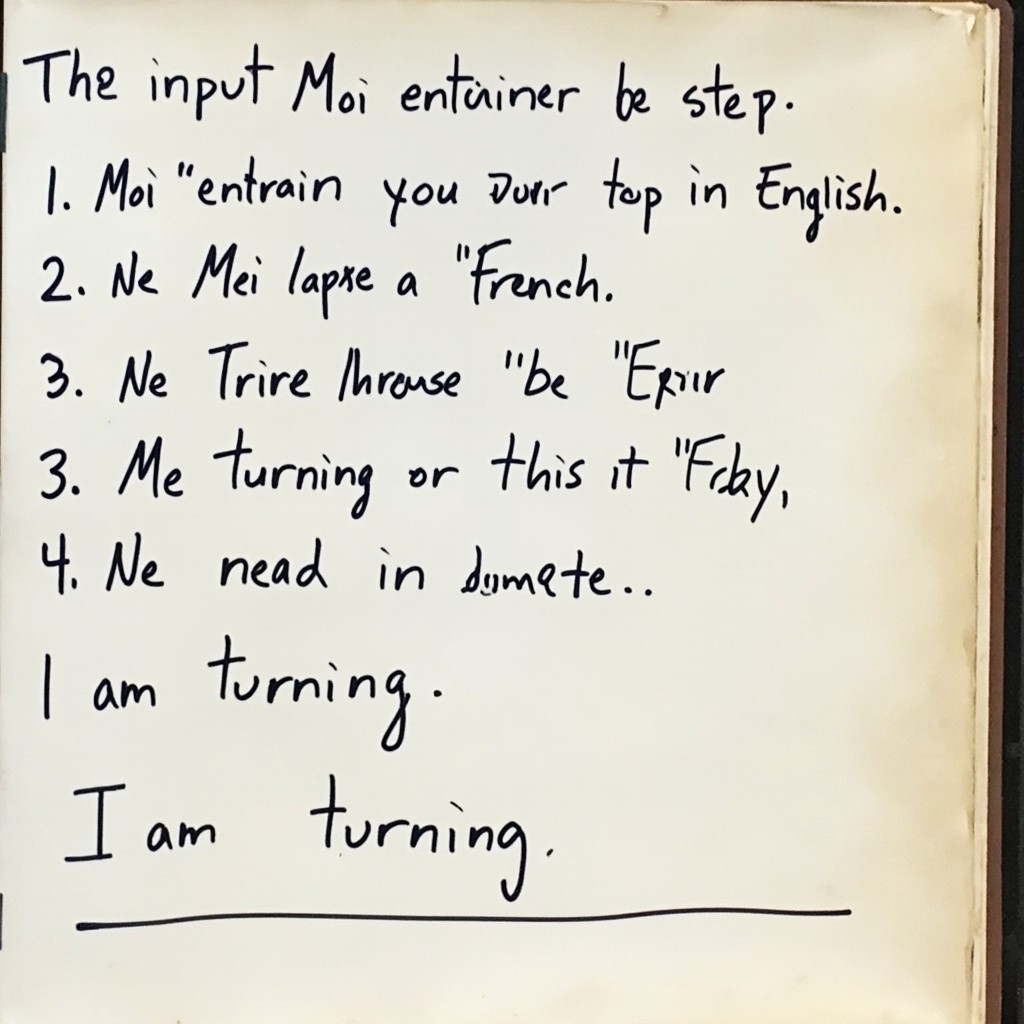 The input Moi entainer be step.
1. Moi "entrain you Durr top in English.
2. Ne Mei lapxe a "French.
3. Ne Trire "be
3. Me turning or this it "Fcby,
4. Ne nead in domate..
I am turning.
I am turning.